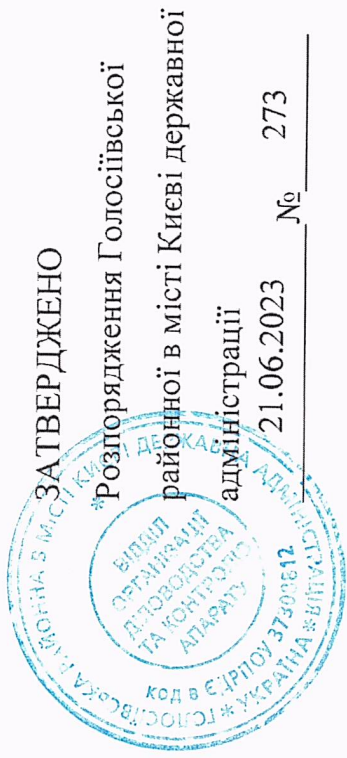 ЗАТВЕРДЖЕНО
Розпорядження Голосіївської
районної в місті Києві державної
адміністрації
21.06.2023 № 273
* ГОЛОСІЇВСЬКА РАЙОННА В МІСТІ КИЄВІ ДЕРЖАВНА АДМІНІСТРАЦІЯ * УКРАЇНА
код в ЄДРПОУ
ВІДДІЛ
ОРГАНІЗАЦІЇ
ДІЛОВОДСТВА
ТА КОНТРОЛЮ
АПАРАТУ